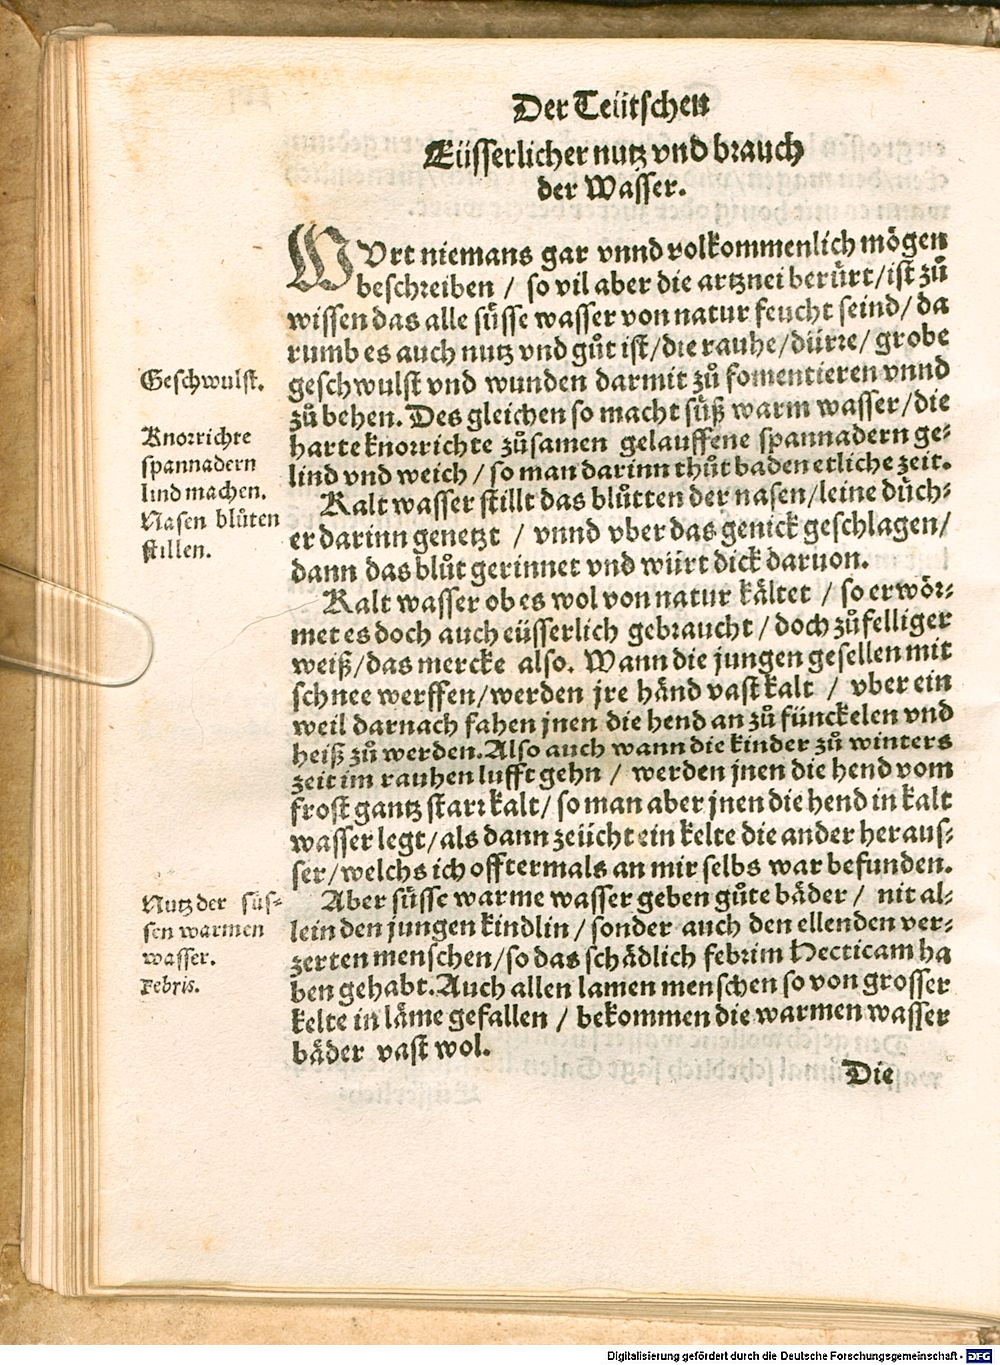 Der Teütschen
Eüsserlicher nutz vnd brauch
der Wasser.
WUrt niemans gar vnnd volkommenlich mögen
beschreiben / so vil aber die artznei berürt/ist zů
wissen das alle süsse wasser von natur feucht seind/da
rumb es auch nutz vnd gůt ist/die rauhe/dürre/grobe
Geschwulst.
geschwulst vnd wunden darmit zů fomentieren vnnd
zů behen. Des gleichen so macht süß warm wasser/die
Knorrichte
spannadern
lind machen.
harte knorrichte zůsamen gelauffene spannadern ge⸗
lind vnd weich / so man darinn thůt baden etliche zeit.
Nasen blůten
stillen.
Kalt wasser stillt das blůtten der nasen/leine düch⸗
er darinn genetzt / vnnd vber das genick geschlagen/
dann das blůt gerinnet vnd würt dick daruon.
Kalt wasser ob es wol von natur kältet / so erwör⸗
met es doch auch eüsserlich gebraucht / doch zůfelliger
weiß/das mercke also. Wann die jungen gesellen mit
schnee werffen/werden jre händ vast kalt / vber ein
weil darnach fahen jnen die hend an zů fünckelen vnd
heiß zů werden. Also auch wann die kinder zů winters
zeit im rauhen lufft gehn / werden jnen die hend vom
frost gantz starr kalt/ so man aber jnen die hend in kalt
wasser legt/als dann zeücht ein kelte die ander heraus⸗
ser/welchs ich offtermals an mir selbs war befunden.
Nutz der süs⸗
sen warmen
wasser.
Febris.
Aber süsse warme wasser geben gůte bäder / nit al⸗
lein den jungen kindlin / sonder auch den ellenden ver⸗
zerten menschen/so das schädlich febrim Hecticam ha
ben gehabt. Auch allen lamen menschen so von grosser
kelte in läme gefallen / bekommen die warmen wasser
bäder vast wol.
Die
Digitalisierung gefördert durch die Deutsche Forschungsgemeinschaft - DFG